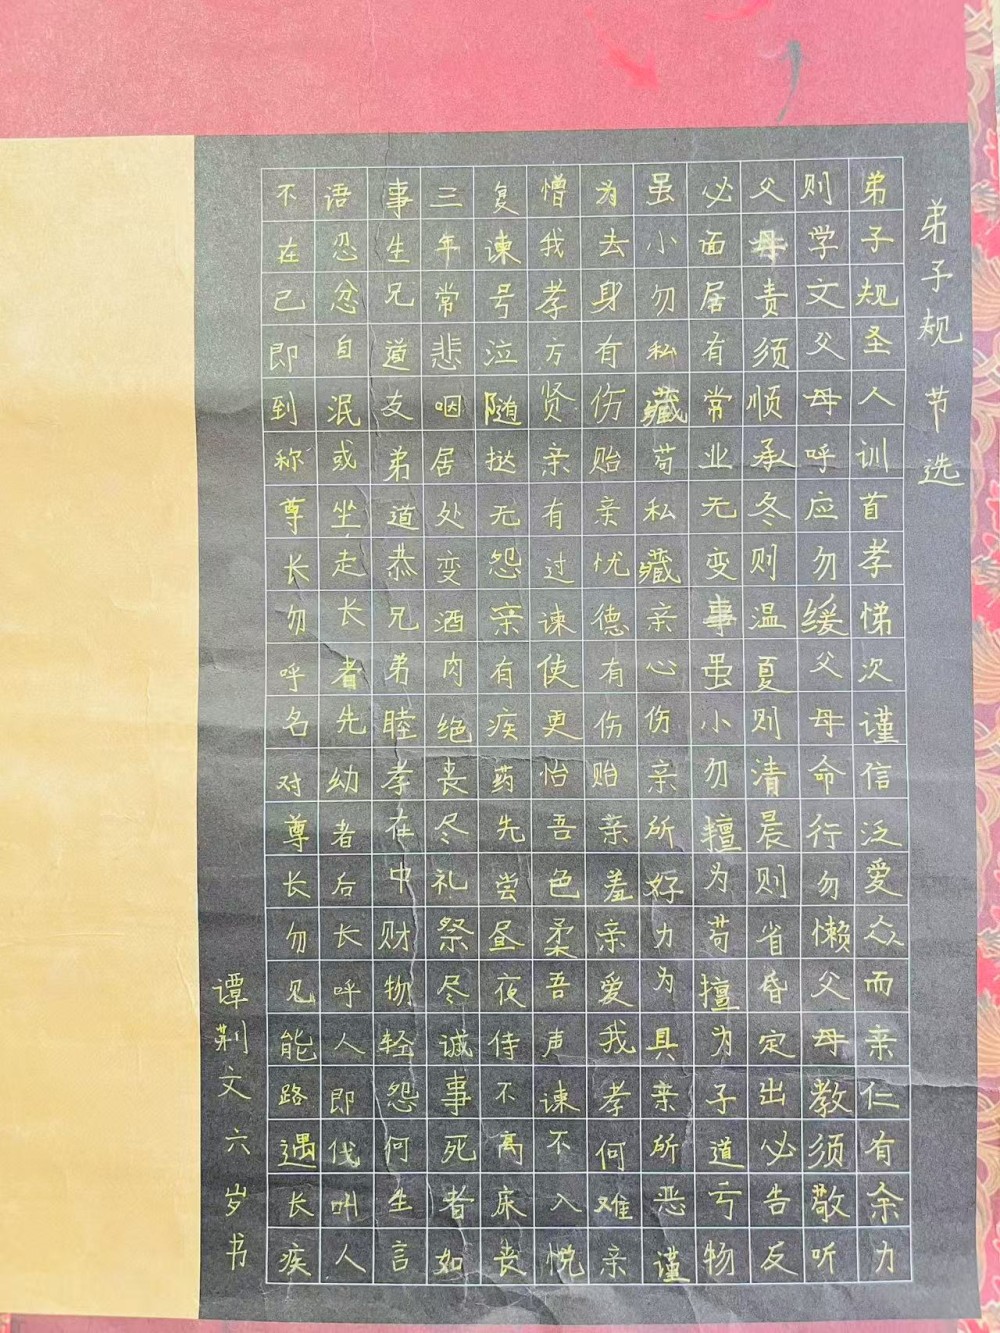 弟子规节选
弟子规圣人训首孝悌次谨信泛爱众而亲仁有余力
则学文父母呼应勿缓父母命行勿懒父母教须敬听
父母责须顺承冬则温夏则清晨则省昏定出必告友
必面居有常业无变事虽小勿擅为苟擅为子道亏物
虽小勿私藏苟私藏亲心伤亲所好力为具亲所恶谨
为去身有伤贻亲忧德有伤贻亲羞亲爱我孝何难亲
憎我孝方贤亲有过谏使更怡吾色柔吾声谏不入悦
复谏号泣随挞无怨亲有疾药先尝昼夜侍不离床丧
三年常悲咽居处变酒肉绝丧尽礼祭尽诚事死者如
事生兄道友弟道恭兄弟睦孝在中财物轻怨何生言
语忍忿自泯或坐走长者先幼者后长呼人即伐叫人
不在己即到称尊长勿呼名对尊长勿见能路遇长疾
谭荆文六岁书